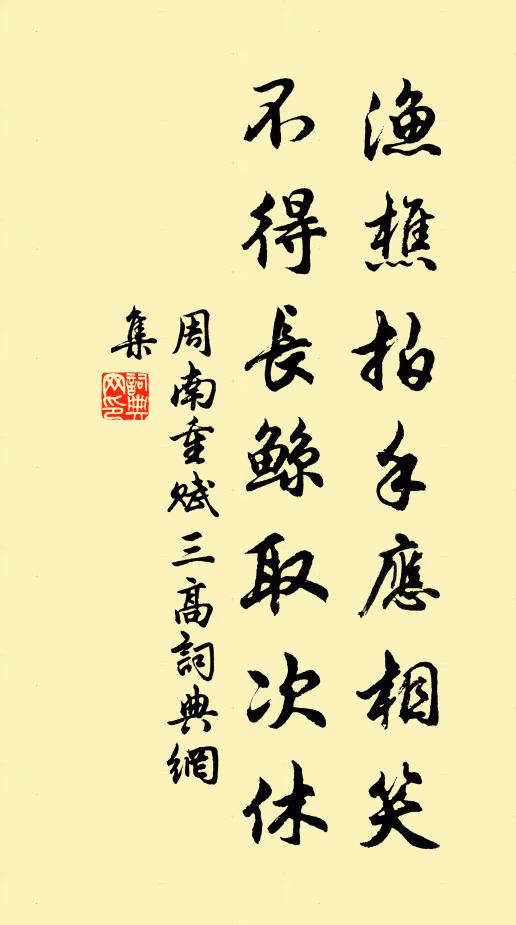 漁樵拍手應相笑
不得長鯨取次休
周南重賦三高詞典網
集
詞典
网印